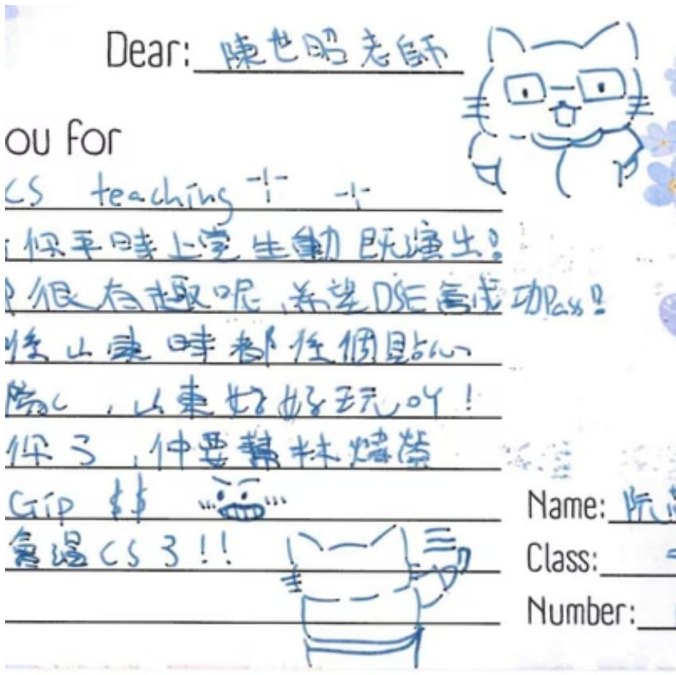 Dear: 陳世昭老師
ou for
CS teaching
你平時上堂生動既演出!
很有趣呢,希望DSE會成功Pass!
係山東時都係個貼心
,山東好好玩吖!
你了,仲要幫林煒
Gip $$
會溫CS了!!
Name: 阮
Class:
Number: